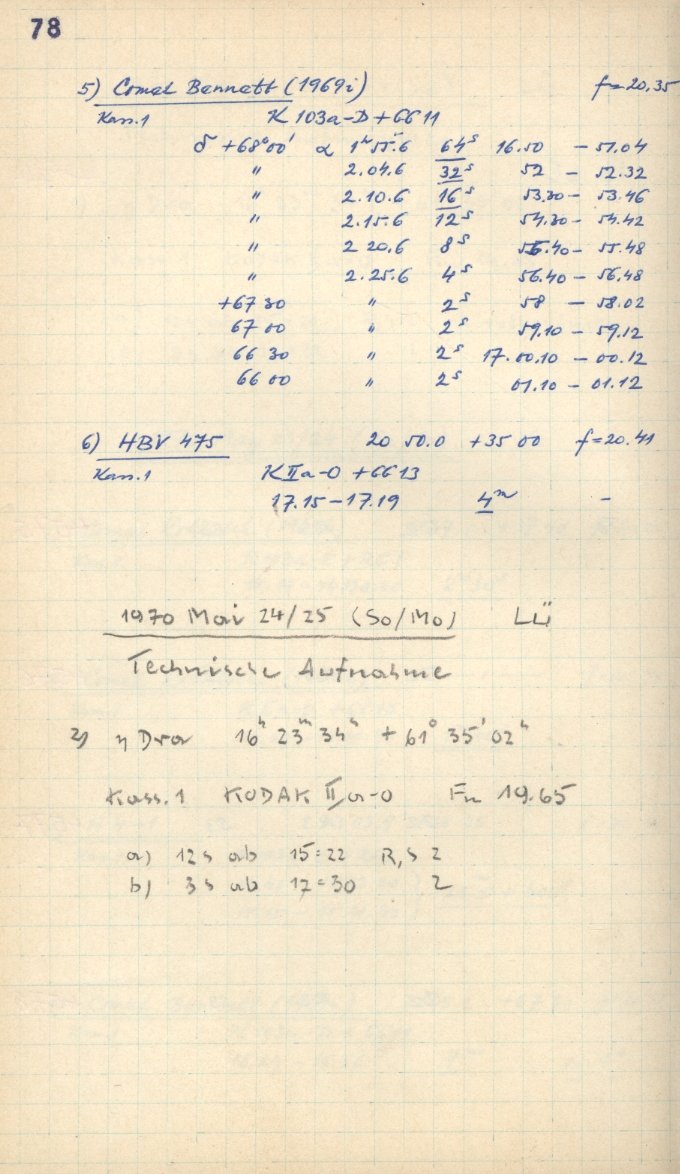 78
5) Comet Bennett (1969i) f=20.35
Kass.1 K 103a-D+6611
δ +68°00' α 1ʰ55.6 64ˢ 16.50 - 51.04
" 2.04.6 32ˢ 52 - 52.32
" 2.10.6 16ˢ 53.30 - 53.46
" 2.15.6 12ˢ 54.30 - 54.42
" 2 20.6 8ˢ 55.40 - 55.48
" 2.25.6 4ˢ 56.40 - 56.48
+67 30 " 2ˢ 58 - 58.02
67 00 " 2ˢ 59.10 - 59.12
66 30 " 2ˢ 17.00.10 - 00.12
66 00 " 2ˢ 01.10 - 01.12
6) HBV 475 20 50.0 +35 00 f=20.41
Kass.1 K IIa-O +6613
17.15-17.19 4ᵐ -
1970 Mai 24/25 (So/Mo) LÜ
Technische Aufnahme
2) η Dra 16ʰ 23ᵐ 34ˢ +61° 35' 02"
Kass.1 KODAK II/a-O 19.65
a) 12s ab 15:22 R,S 2
b) 3s ab 17:30 2